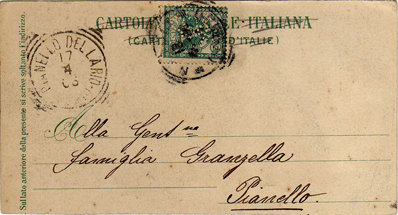 CARTOLINA POSTALE ITALIANA
(CARTE POSTALE D'ITALIE)
17
4
Sul lato anteriore della presente si scrive soltanto l'indirizzo.
Alla Gent ma
Famiglia Granzella
Pianello